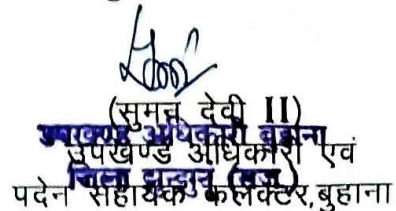 (सुमन देवी II)
उपखण्ड अधिकारी बुहाना
उपखण्ड अधिकारी एवं
जिला झुन्झुनू (राज.)
पदेन सहायक कलेक्टर,बुहाना